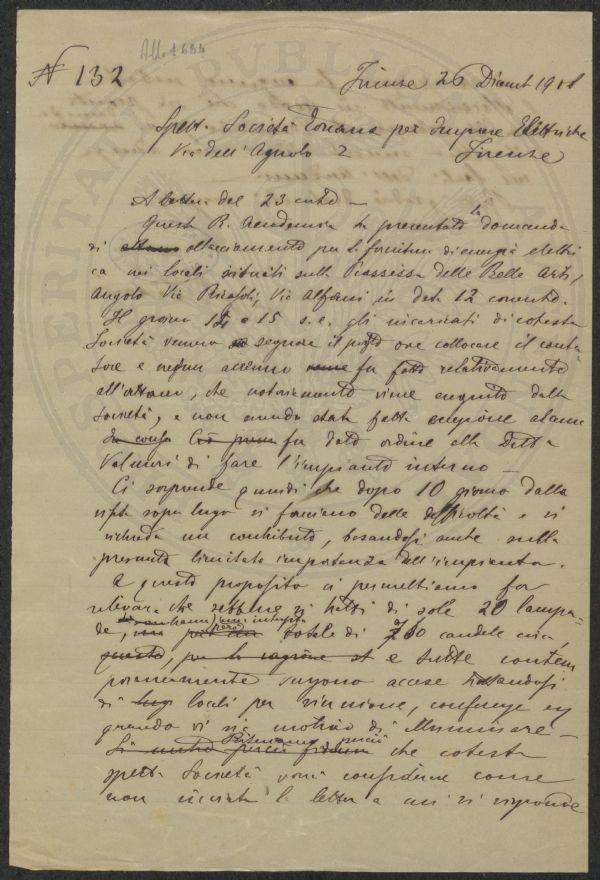 All. 1644
N 132
Firenze 26 Dicemb 1908
Spett. Società Toscana per Imprese Elettriche
Via dell'Agnolo 2 Firenze
A lettera del 23 corrte —
Questa R. Accademia ha presentato la domanda
di allacciamento per la fornitura di energia elettri
ca nei locali situati sulla Piazzetta delle Belle Arti,
angolo Via Ricasoli, Via Alfani in data 12 corrente.
Il giorno 14 e 15 s. c. gli incaricati di cotesta
Società vennero a segnare il posto ove collocare il conta
tore e nessun accenno fu fatto relativamente
all'attacco, che notoriamente viene eseguito dalla
Società, e non essendo stata fatta eccezione alcuna
fu dato ordine alla Ditta
Valmori di fare l'impianto interno —
Ci sorprende quindi che dopo 10 giorni dalla
visita sopra luogo si facciano delle difficoltà e si
richieda un contributo, basandosi anche sulla
presunta limitata importanza dell'impianto.
A questo proposito ci permettiamo far
rilevare che sebbene si tratti di sole 20 lampa-
de, hanno però una intensità
totale di 260 candele circa,
questo, per la ragione e tutte contem
poraneamente vengono accese trattandosi
di locali per riunione, conferenze ecc
quando vi sia motivo di illuminare —
Riteniamo perciò che cotesta
spett. Società vorrà considerare come
non inviata la lettera a cui si risponde